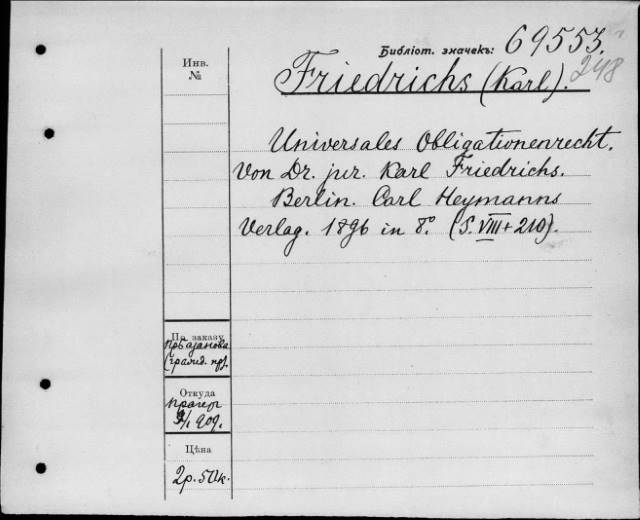 Библіот. значекъ: 69553.
248
Инв. №
Friedrichs (Karl).
Universales Obligationenrecht.
Von Dr. jur. Karl Friedrichs.
Berlin. Carl Heymanns
Verlag. 1896 in 8.° (S. VIII + 210).
По заказу
Откуда
909.
Цѣна
2 р. 50 к.